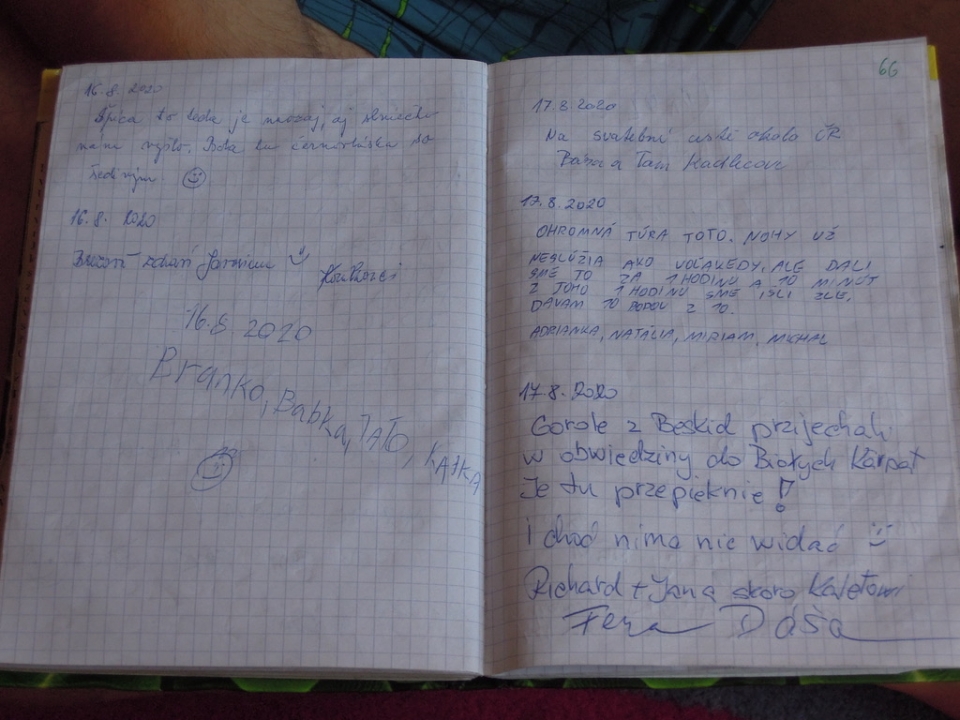 16.8.2020
Špica to teda je naozaj, aj
nám vyšlo. to
16.8. 2020
16.8 2020
Branko, Babka, TATO, KATKA
66
17.8.2020
Na svatební cestě okolo ČR
Bára a Tom Kadlecovi
17.8.2020
OHROMNÁ TÚRA TOTO. NOHY UŽ
NESLÚŽIA AKO VOĽAKEDY, ALE DALI
SME TO ZA 1 HODINU A 10 MINÚT
Z TOHO 1 HODINU SME IŠLI ZLE,
DÁVAM 10 BODOV Z 10.
ADRIANKA, NATÁLIA, MIRIAM, MICHAL
17.8.2020
Gorole z Beskid przijechali
w obwiedziny do Białych Karpat
Je tu przepieknie!
I choć nima nic widać
Richard + Jana skoro Kaletowi
Fera Dáša